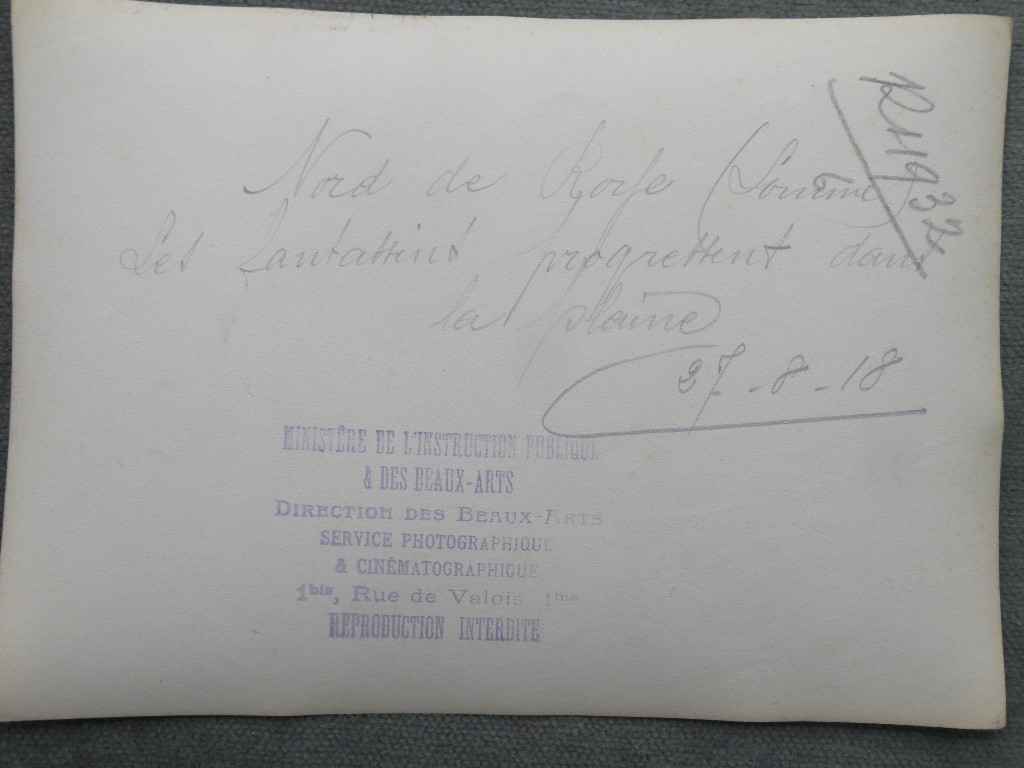 R11932
Nord de Roye (Somme)
Les fantassins progressent dans
la plaine
27-8-18
MINISTÈRE DE L'INSTRUCTION PUBLIQUE
& DES BEAUX-ARTS
DIRECTION DES BEAUX-ARTS
SERVICE PHOTOGRAPHIQUE
& CINÉMATOGRAPHIQUE
1bis, Rue de Valois 1bis
REPRODUCTION INTERDITE